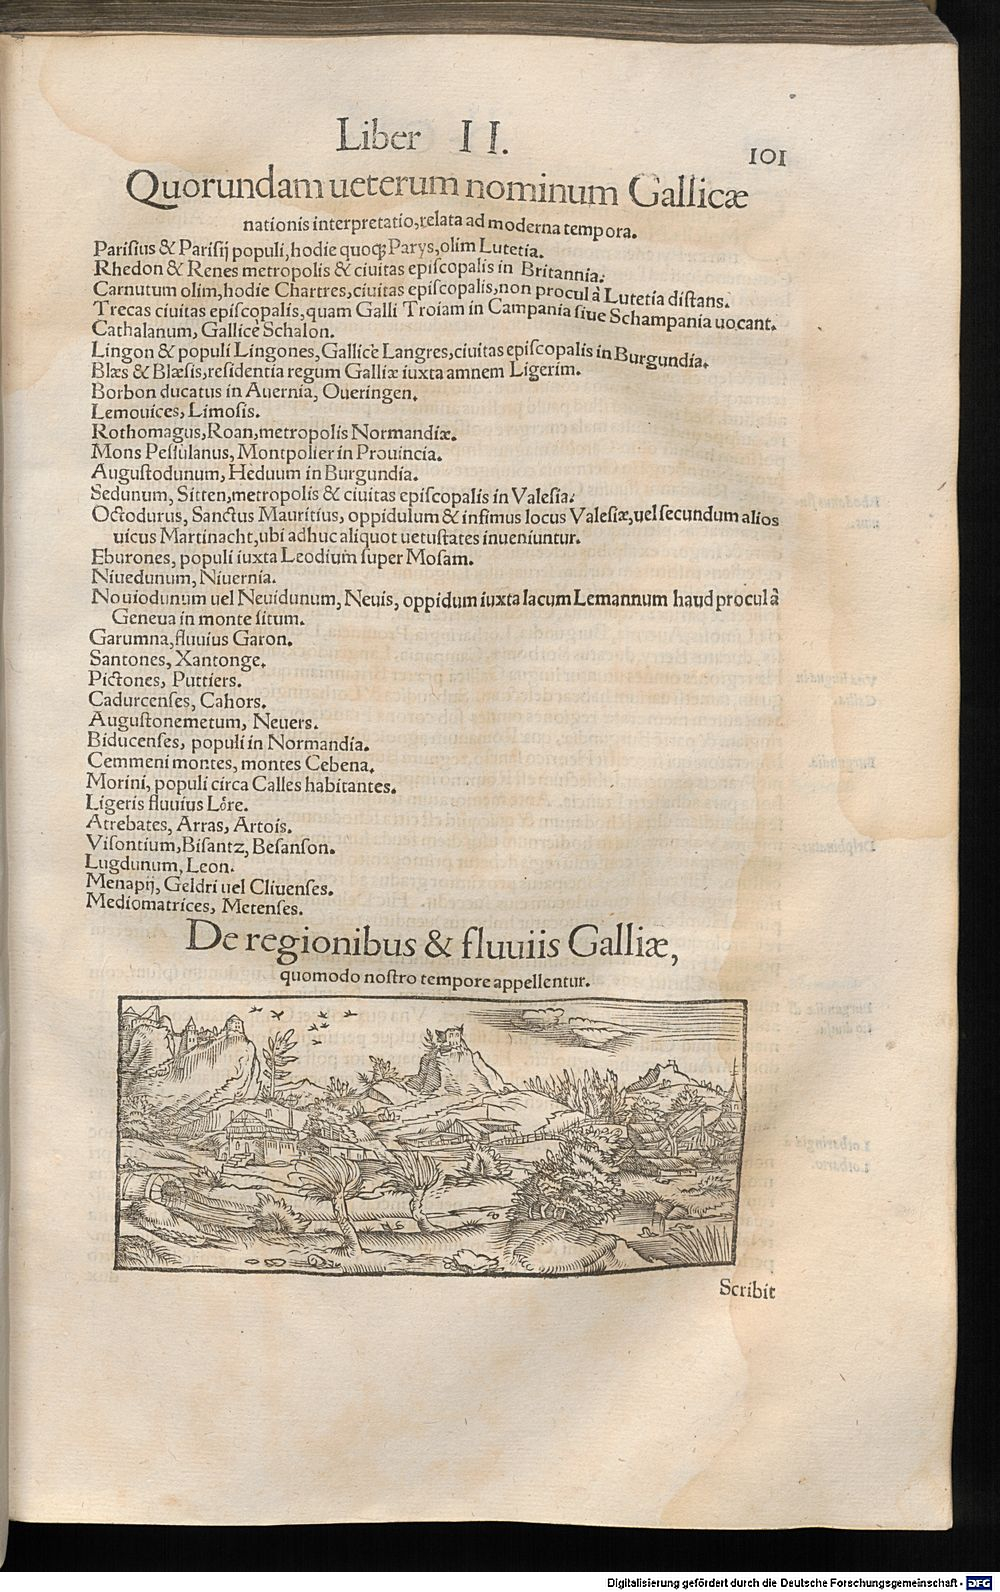 Liber II.
101
Quorundam ueterum nominum Gallicæ
nationis interpretatio, relata ad moderna tempora.
Parisius & Parisij populi, hodie quoq; Parys, olim Lutetia.
Rhedon & Renes metropolis & ciuitas episcopalis in Britannia.
Carnutum olim, hodie Chartres, ciuitas episcopalis, non procul à Lutetia distans.
Trecas ciuitas episcopalis, quam Galli Troiam in Campania siue Schampania uocant.
Cathalanum, Gallicè Schalon.
Lingon & populi Lingones, Gallicè Langres, ciuitas episcopalis in Burgundia.
Blæs & Blæsis, residentia regum Galliæ iuxta amnem Ligerim.
Borbon ducatus in Auernia, Oueringen.
Lemouices, Limosis.
Rothomagus, Roan, metropolis Normandiæ.
Mons Pessulanus, Montpolier in Prouincia.
Augustodunum, Heduum in Burgundia.
Sedunum, Sitten, metropolis & ciuitas episcopalis in Valesia.
Octodurus, Sanctus Mauritius, oppidulum & infimus locus Valesiæ, uel secundum alios
uicus Martinacht, ubi adhuc aliquot uetustates inueniuntur.
Eburones, populi iuxta Leodium super Mosam.
Niuedunum, Niuernia.
Nouiodunum uel Neuidunum, Neuis, oppidum iuxta lacum Lemannum haud procul à
Geneua in monte situm.
Garumna, fluuius Garon.
Santones, Xantonge.
Pictones, Puttiers.
Cadurcenses, Cahors.
Augustonemetum, Neuers.
Biducenses, populi in Normandia.
Cemmeni montes, montes Cebena.
Morini, populi circa Calles habitantes.
Ligeris fluuius Lôre.
Atrebates, Arras, Artois.
Visontium, Bisantz, Besanson.
Lugdunum, Leon.
Menapij, Geldri uel Cliuenses.
Mediomatrices, Metenses.
De regionibus & fluuiis Galliæ,
quomodo nostro tempore appellentur.
Scribit
Digitalisierung gefördert durch die Deutsche Forschungsgemeinschaft - DFG